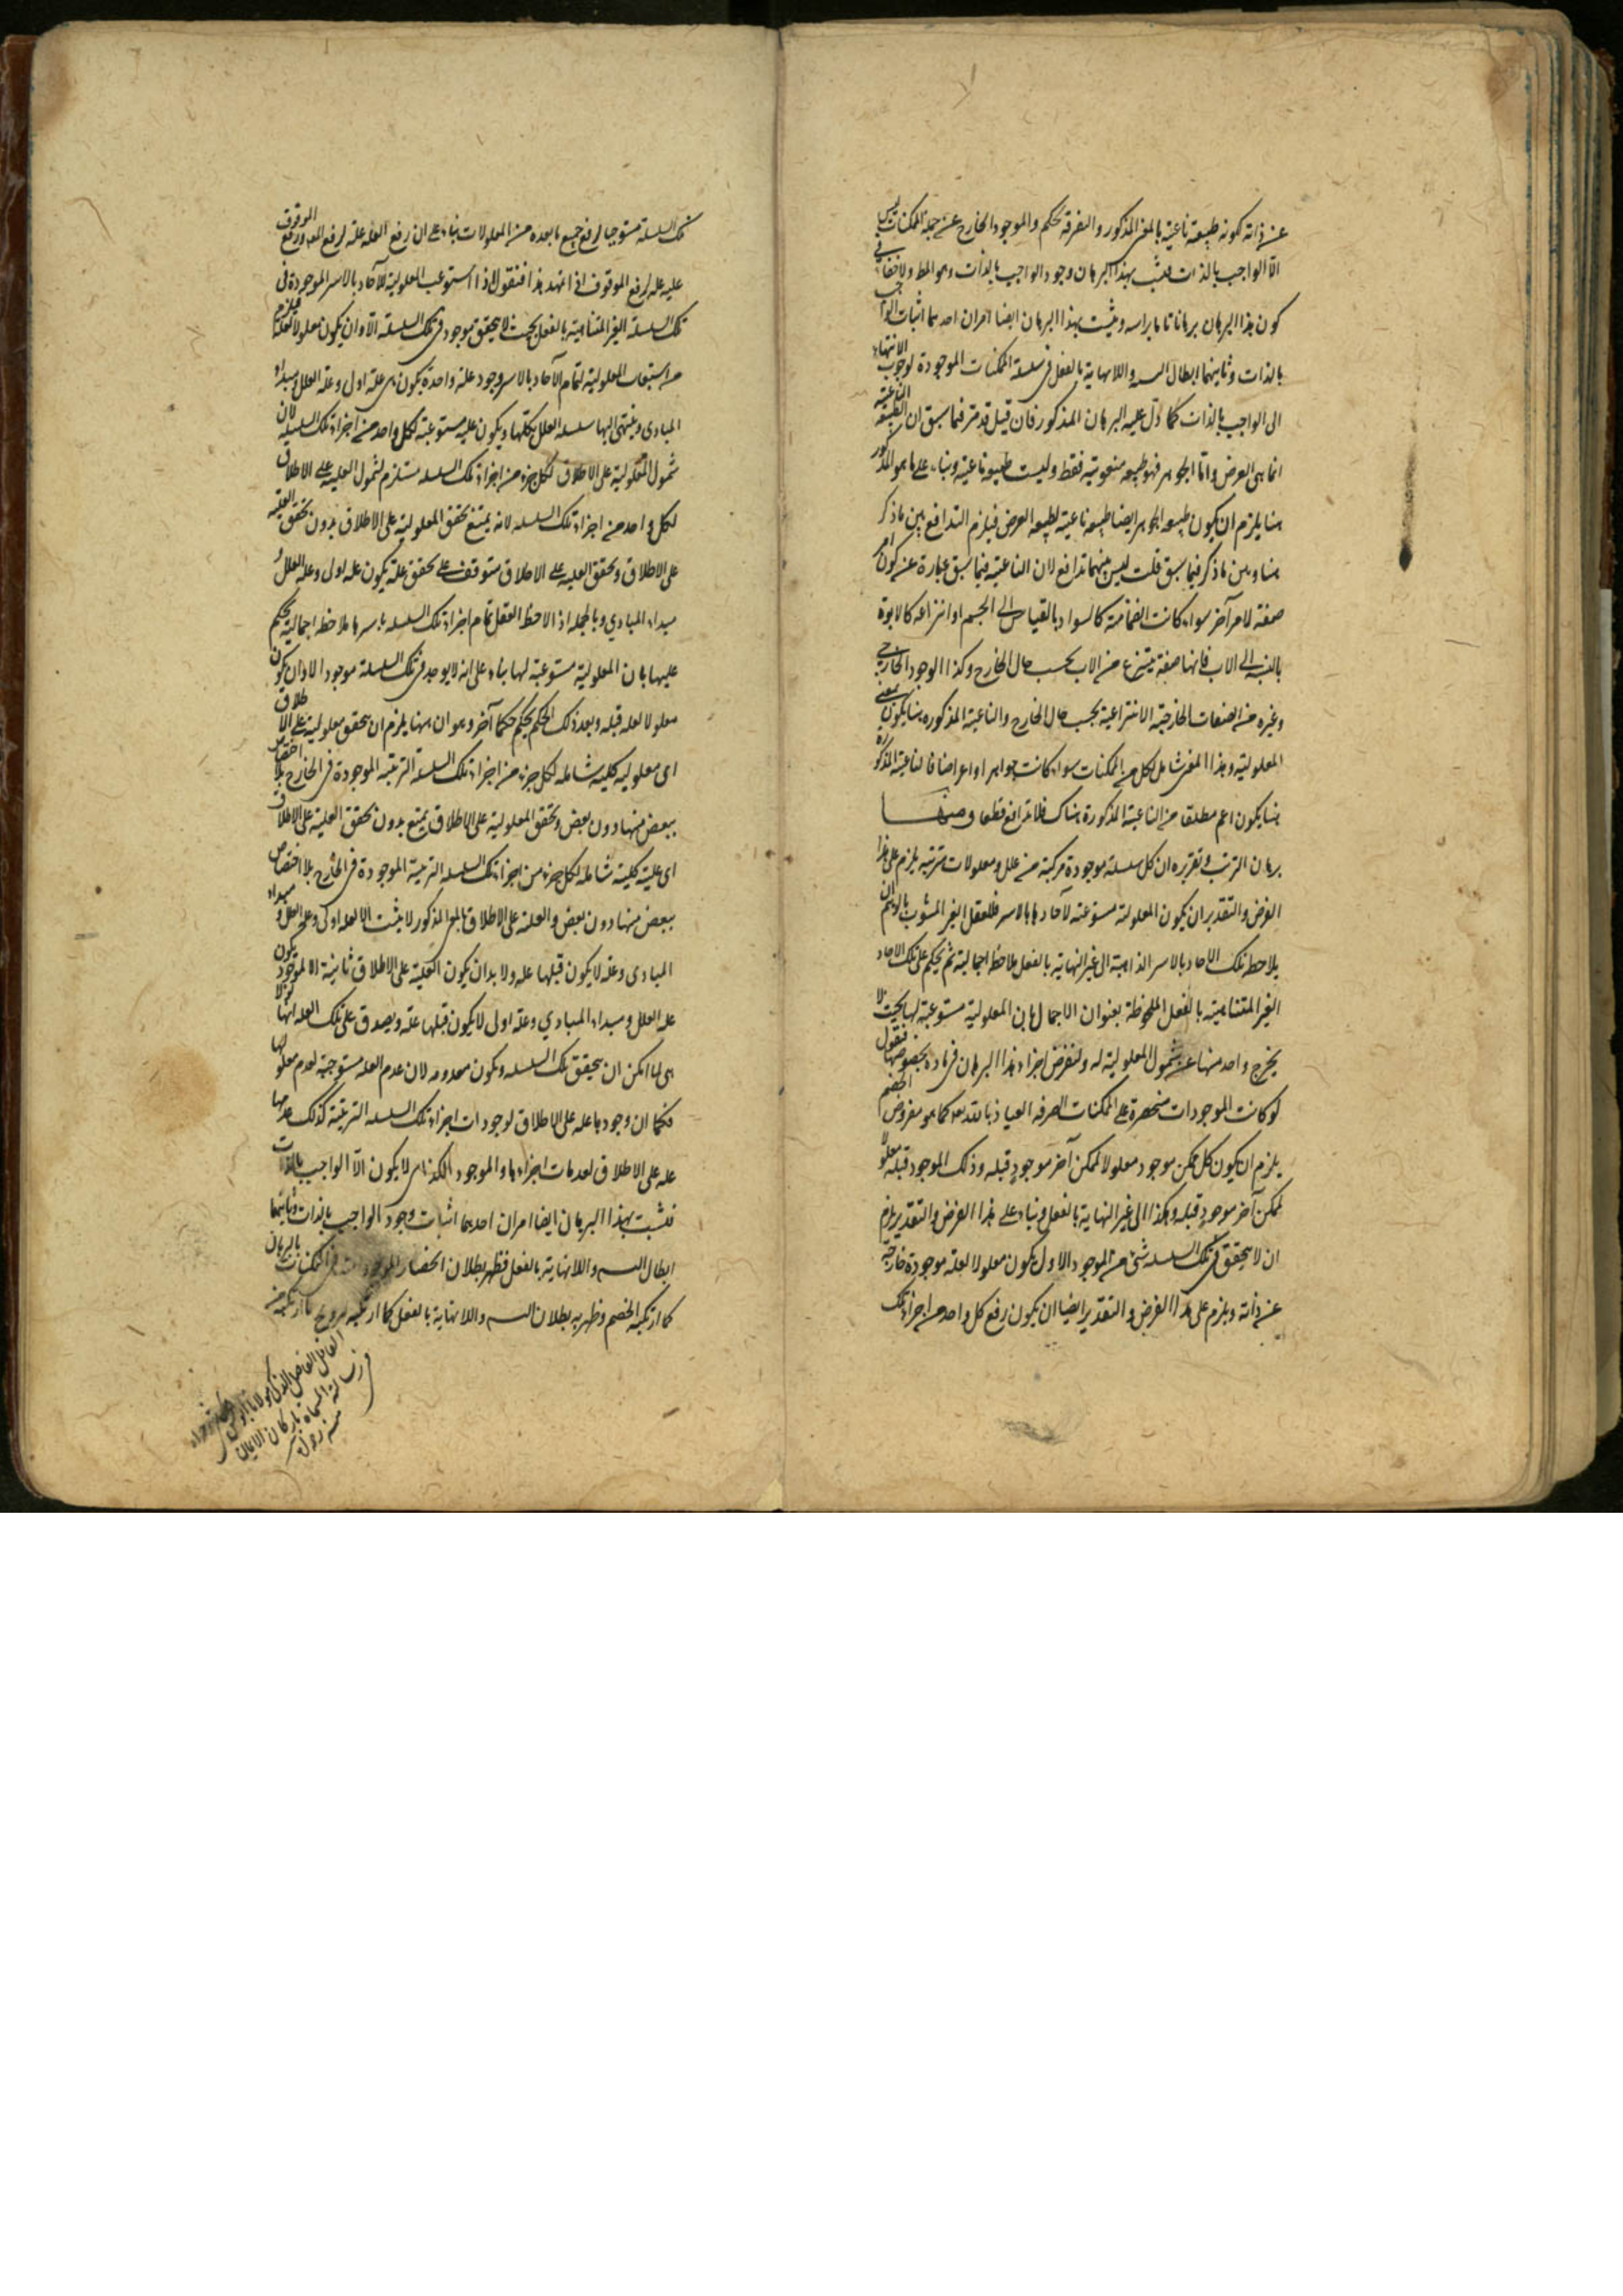 عن ذاته لكونه طبيعة ناعتية بالمعنى المذكور والتفرقة تحكم والموجود الخارج عن جملة الممكنات ليس
الّا الواجب بالذات فثبت بهذا البرهان وجود الواجب بالذات وهو المط ولا خفاء في
كون هذا البرهان برهانا تاما براسه ويثبت بهذا البرهان ايضا امران احدهما اثبات الواجب
بالذات وثانيهما ابطال التسـ واللانهاية بالفعل في سلسلة الممكنات الموجودة لوجوب الانتهاء
الى الواجب بالذات كما دلّ عليه البرهان المذكور فان قيل قد مرّ فيما سبق ان الطبيعة الناعتية
انما هي العرض وامّا الجوهر فهو طبيعة منعوتية فقط وليست طبيعة ناعتية وبناء على ما هو المذكور
هنا يلزم ان يكون طبيعة الجوهر ايضا طبيعة ناعتية كطبيعة العرض فيلزم التدافع بين ما ذكر
هنا وبين ما ذكر فيما سبق قلت ليس بينهما تدافع لان الناعتية فيما سبق عبارة عن كون امر
صفة لامر آخر سواء كانت انضمامية كالسواد بالقياس الى الجسم او انتزاعية كالابوة
بالنسبة الى الاب فانها صفة ينتزع من الاب بحسب حال الخارج وكذا الوجود الخارجي
وغيره من الصفات الخارجية الانتزاعية بحسب حال الخارج والناعتية المذكورة هنا يكون بمعنى
المعلولية وهذا المعنى شامل لكل من الممكنات سواء كانت جواهر او اعراضا فالناعتية المذكورة
هنا يكون اعم مطلقا من الناعتية المذكورة هناك فلا تدافع قطعا ومنها
برهان الترتب وتقريره ان كل سلسلة موجودة مركبة من علل ومعلولات مترتبة يلزم على هذا
الفرض والتقدير ان يكون المعلولية مستوعبة لآحادها بالاسر فللعقل الغير المشوب بالوهم ان
يلاحظ تلك الآحاد بالاسر الذاهبة الى غير النهاية بالفعل ملاحظة اجمالية ثم يحكم على تلك الآحاد
الغير المتناهية بالفعل الملحوظة بعنوان الاجمال بان المعلولية مستوعبة لها بحيث لا
يخرج واحد منها عن شمول المعلولية له ولنفرض اجراء هذا البرهان في مادة بخصوصها فنقول
لو كانت الموجودات منحصرة على الممكنات الصرفة العياذ بالله تعه كما هو مفروض الخصم
يلزم ان يكون كل ممكن موجود معلولا لممكن آخر موجود قبله وذلك الموجود قبله معلولا
لممكن آخر موجود قبله وهكذا الى غير النهاية بالفعل وبناء على هذا الفرض والتقدير يلزم
ان لا يتحقق في تلك السلسلة شئ من الموجود الا وان يكون معلولا لعلة موجودة خارجة
عن ذاته ويلزم على هذا الفرض والتقدير ايضا ان يكون رفع كل واحد من اجزاء تلك
تلك السلسلة مستوجبا لرفع جميع ما بعده من المعلولات بناء على ان رفع العلة علة لرفع المعلول ورفع الموقوف
عليه علة لرفع الموقوف اذا تمهد هذا فنقول اذا استوعب المعلولية للآحاد بالاسر الموجودة في
تلك السلسلة الغير المتناهية بالفعل بحيث لا يتحقق موجود في تلك السلسلة الّا وان يكون معلولا لعلة فيلزم
من استيعاب المعلولية لتمام الآحاد بالاسر وجود علة واحدة يكون هي علة اولى وعلة العلل ومبداء
المبادي وينتهي اليها سلسلة العلل بكلّها ويكون علية مستوعبة لكل واحد من اجزاء تلك السلسلة لان
شمول المعلولية على الاطلاق لكل جزء من اجزاء تلك السلسلة مستلزم لشمول العلية على الاطلاق
لكل واحد من اجزاء تلك السلسلة لانه يمتنع تحقق المعلولية على الاطلاق بدون تحقق العلية
على الاطلاق وتحقق العلية على الاطلاق متوقف على تحقق علة يكون علة اولى وعلة العلل و
مبداء المبادي وبالجملة اذا لاحظ العقل تمام اجزاء تلك السلسلة باسرها ملاحظة اجمالية يحكم
عليها بان المعلولية مستوعبة لها بناء على انه لا يوجد في تلك السلسلة موجود الا وان يكون
معلولا لعلة قبله وبعد ذلك الحكم يحكم حكما آخر وهو ان ههنا يلزم ان يتحقق معلولية على الاطلاق
اي معلولية كلية شاملة لكل جزء من اجزاء تلك السلسلة الترتبية الموجودة في الخارج بلا اختصاص
ببعض منها دون بعض وتحقق المعلولية على الاطلاق يمتنع بدون تحقق العلية على الاطلاق
اي علية كلية شاملة لكل جزء من اجزاء تلك السلسلة الترتبية الموجودة في الخارج بلا اختصاص
ببعض منها دون بعض والعلية على الاطلاق بالمعنى المذكور لا يثبت الا لعلة اولى وعلة العلل ومبداء
المبادي وعلة لا يكون قبلها علة ولا بد ان يكون العلية على الاطلاق ثابتة لموجود يكون
علة العلل ومبداء المبادي وعلة اولى لا يكون قبلها علة ويصدق على تلك العلة انها لولا
هي لما امكن ان يتحقق تلك السلسلة ويكون معدومة لان عدم العلة مستوجبة لعدم معلولها
فكما ان وجودها علة على الاطلاق لوجودات اجزاء تلك السلسلة الترتبية كذلك عدمها
علة على الاطلاق لعدمات اجزاءها والموجود الكذائي لا يكون الّا الواجب بالذات
فثبت بهذا البرهان ايضا امران احدهما اثبات وجود الواجب بالذات وثانيهما
ابطال التسـ واللانهاية بالفعل فظهر بطلان انحصار الموجودات في الممكنات بالبرهان
كما ارتكبه الخصم وظهر به بطلان التسـ واللانهاية بالفعل كما ارتكبه
العالم الفاضل مولانا
رسالة المسماة باركان الايمان